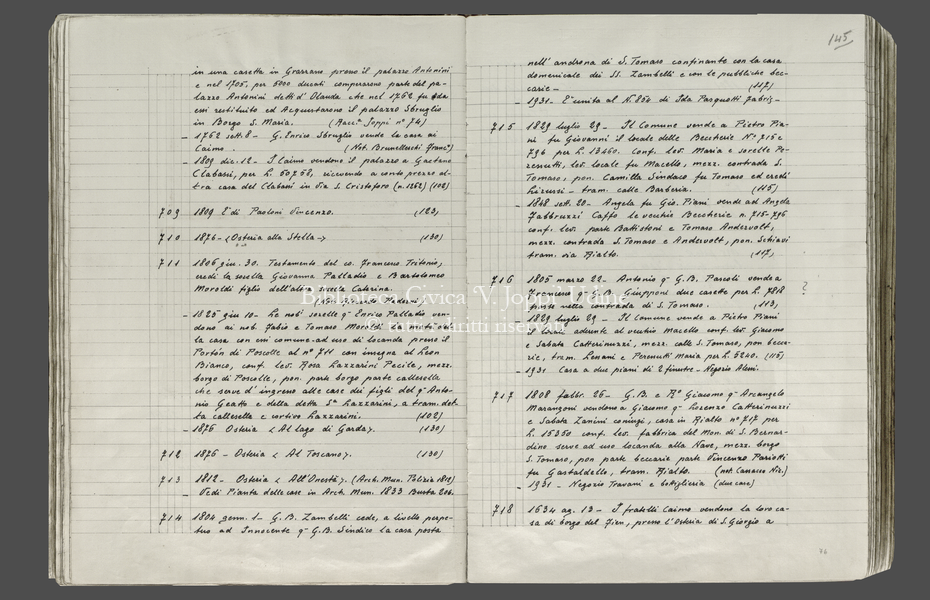 in una casetta in Grazzano presso il palazzo Antonini
e nel 1705, per 5000 ducati comperarono parte del pa-
lazzo Antonini detti d'Olanda che nel 1762 fu da
essi restituito ed Acquistarono il palazzo Sbruglio
in Borgo S. Maria. (Racc.a Joppi n° 74)
- 1762 sett. 8 - G. Enrico Sbruglio vende la casa ai
Caimo. (Not. Brunelleschi Franc°)
- 1809 dic. 12 - I Caimo vendono il palazzo a Gaetano
Clabassi, per L. 60758, ricevendo a conto prezzo al-
tra casa del Clabassi in Via S. Cristoforo (n. 1262) (102)
709 1809 È di Paoloni Vincenzo. (123)
710 1876 - <Osteria alla Stella> (130)
711 1806 giu. 30. Testamento del co. Francesco Tritonio,
eredi la sorella Giovanna Palladio e Bartolomeo
Moroldi figlio dell'altra sorella Caterina.
- 1825 giu 10 - Le nobi sorelle q.m Enrico Palladio ven-
dono ai nob. Fabio e Tomaso Moroldi
la casa con casi comune ad uso di locanda presso il
Portòn di Poscolle al n° 711 con insegna al Leon
Bianco, conf. lev. Rosa Lazzarini Pecile, mezz.
borgo di Poscolle, pon. parte borgo parte callesella
che serve d'ingresso alle case dei figli del q.m Anto-
nio Geatti e della detta S.a Lazzarini, a tram. det-
ta callesella e cortivo Lazzarini. (102)
- 1876 Osteria < Al lago di Garda>. (130)
712 1876 - Osteria < Al Toscano>. (130)
713 1812 - Osteria < All'Onestà>. (Arch. Mun. Polizia 1812)
- Vedi Pianta delle case in Arch. Mun. 1833 Busta 206.
714 1804 genn. 1 - G. B. Zambelli cede, a livello perpe-
tuo ad Innocente q.m G. B. Sindico la casa posta
145
nell'androna di S. Tomaso confinante con la casa
domenicale dei SS. Zambelli e con le pubbliche bec-
carie - (117)
- 1931 - È unita al N. 854 di Ida Pasquotti Fabris -
715 1829 luglio 29 - Il Comune vende a Pietro Pia-
ni fu Giovanni il locale delle Beccherie N° 715 e
796 per L. 13460. Conf. lev. Maria e sorelle Pe-
ressutti, lev. locale fu Macello, mezz. contrada S.
Tomaso, pon. Camilla Sindaco fu Tomaso ed eredi
- tram. calle Barberia. (115)
- 1848 sett. 20 - Angela fu Gio. Piani vende ad Angelo
Fabbruzzi Caffo le vecchie Beccherie n. 715-796
conf. lev. parte Battistoni e Tomaso Andervolt,
mezz. contrada S. Tomaso e Andervolt, pon. Schiavi
tram. via Rialto. (117)
716 1805 marzo 22 - Antonio q.m G. B. Pascoli vende a
q.m G. B. Giupponi due casette per L. 7818
poste nella contrada di S. Tomaso. (113)
?
- 1829 luglio 29 - Il Comune vende a Pietro Piani
il locale aderente al vecchio Macello conf. lev. Giacomo
e Sabata Catterinuzzi, mezz. calle S. Tomaso, pon. becca-
rie, tram. Lenani e Peressutti Maria per L. 5240. (115)
- 1931 Casa a due piani di 2 finestre - Negozio
717 1808 febbr. 26 - G. B. e R.do Giacomo q.m Arcangelo
Marangoni vendono a Giacomo q.m Lorenzo Catterinuzzi
e Sabata Zanini coniugi, casa in Rialto n° 717 per
L. 15350 conf. lev. fabbrica del Mon. di S. Bernar-
dino serve ad uso locanda alla Nave, mezz. borgo
S. Tomaso, pon parte beccarie parte Vincenzo Pariotti
fu Gastaldello, tram. Rialto. (not. Cancianini Nic.)
- 1931 - Negozio Travani e bottiglieria (due case)
718 1634 ag. 13 - I fratelli Caimo vendono la loro ca-
sa di borgo del Zivn, presso l'Osteria di S. Giorgio a
76
Biblioteca Civica "V. Joppi" Udine
© tutti i diritti riservati